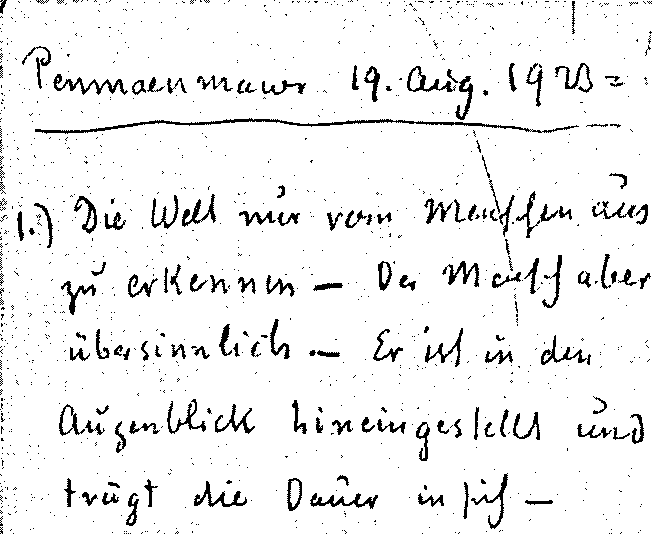 Penmaenmawr 19. Aug. 1923 =
1.) Die Welt nur vom Menschen aus
zu erkennen – Der Mensch aber
übersinnlich. – Er ist in den
Augenblick hineingestellt und
trägt die Dauer in sich –